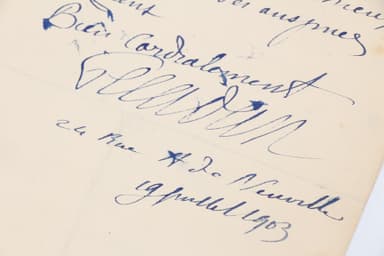 ses auspices
Bien Cordialement
Péladan
24 Rue A de Neuville
19 juillet 1903